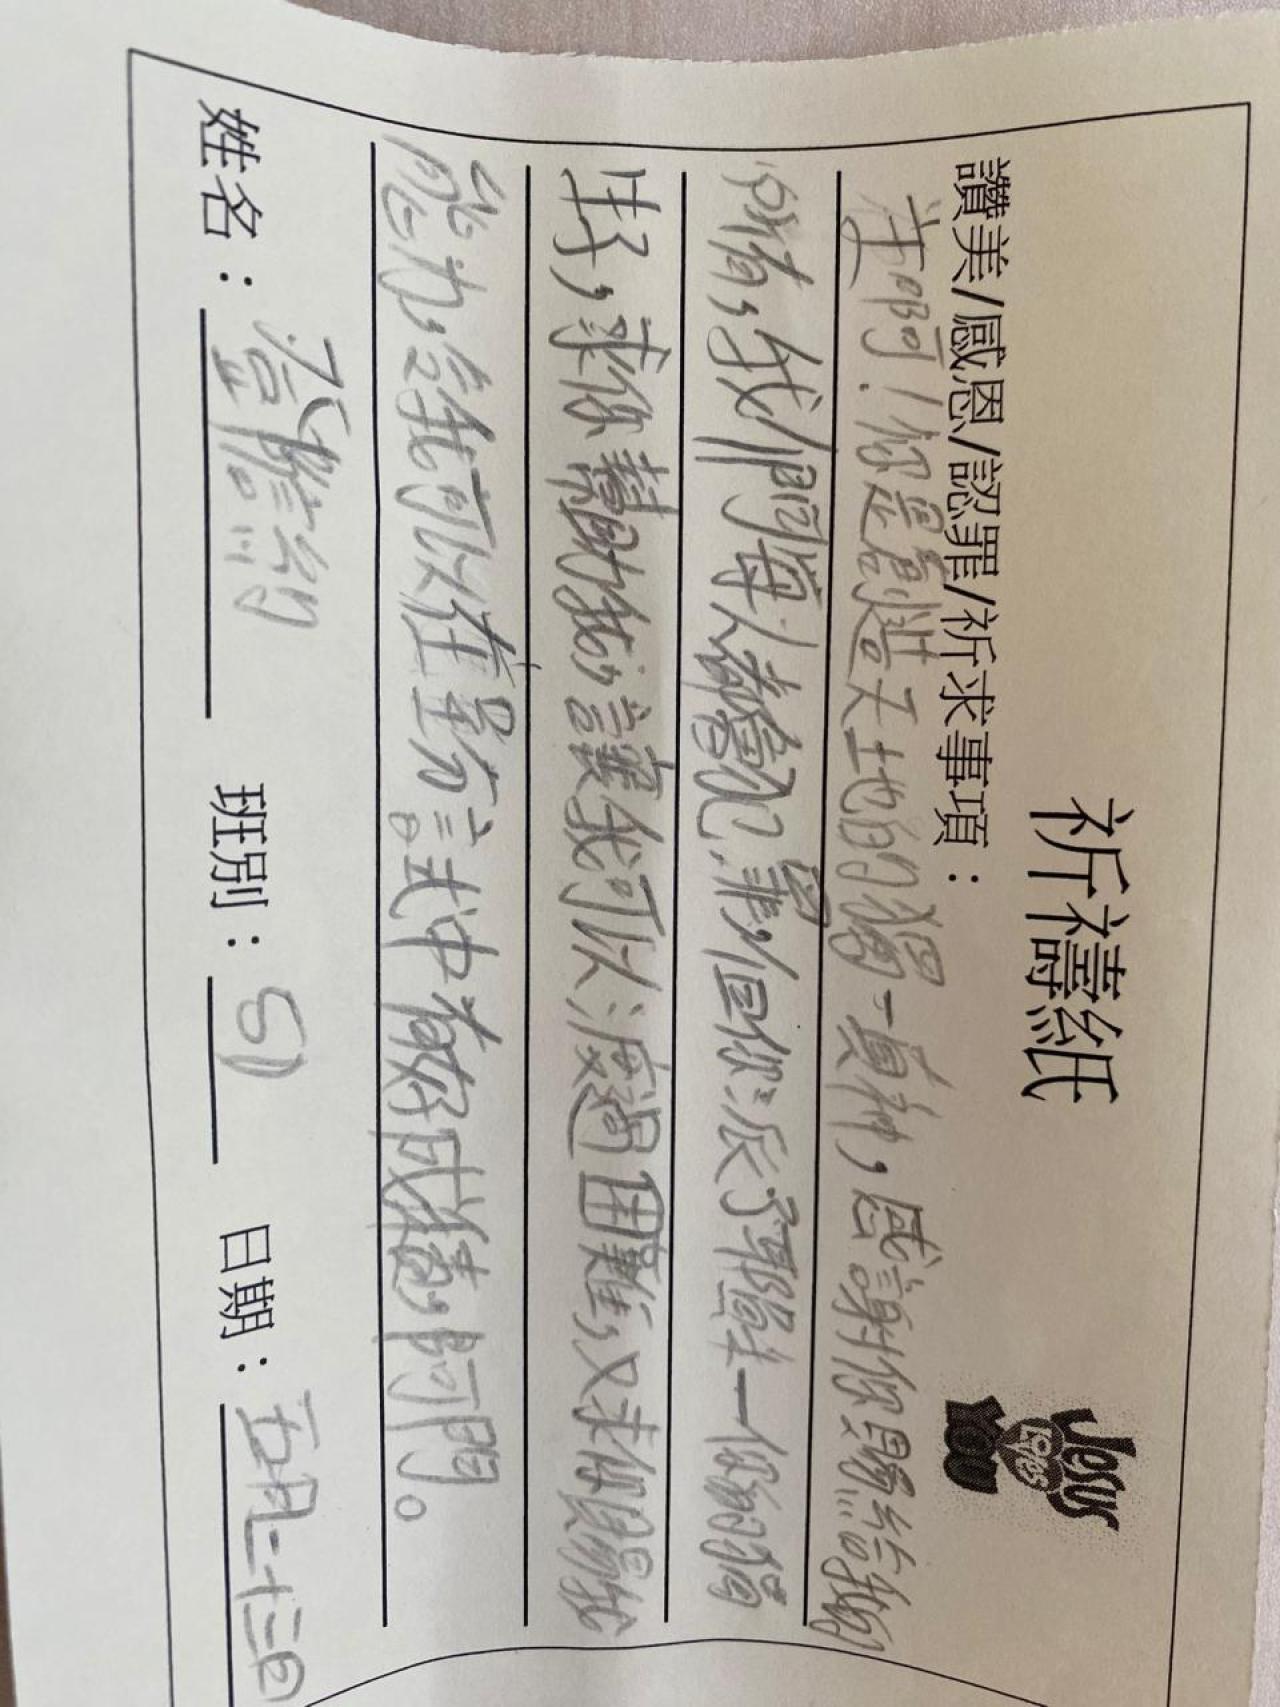 祈禱紙
Jesus Loves You
讚美/感恩/認罪/祈求事項：
主啊！你是創造天地的獨一真神，感謝你賜給我
所有，我們每人都會犯罪，但你派了耶穌—你的獨
生子，求你幫助我，讓我可以渡過困難，又求你賜我
能力，給我可以在呈分試中有好成績，阿門。
姓名： 班別： 日期：五月二十三日